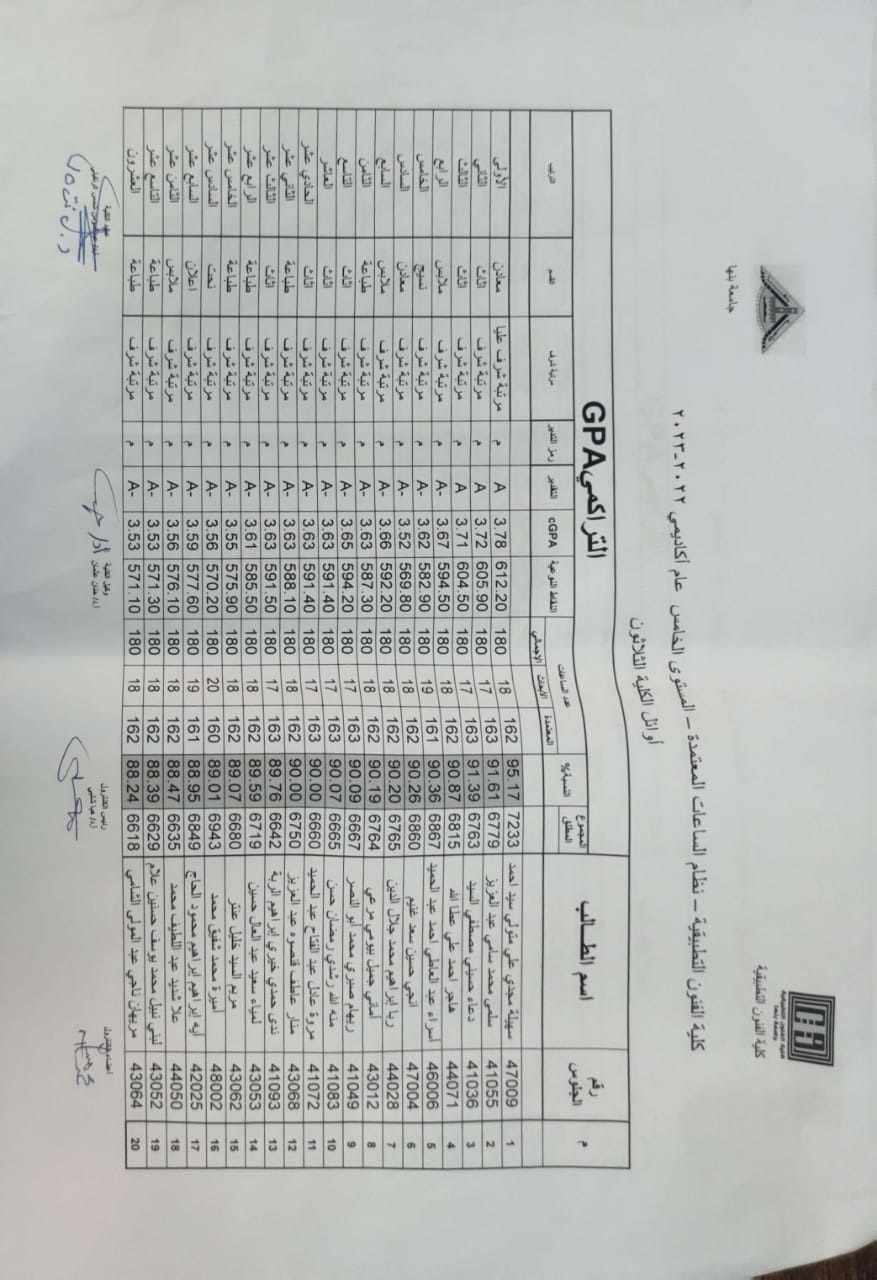 جامعة بنها
كلية الفنون التطبيقية
كلية الفنون التطبيقية – نظام الساعات المعتمدة – المستوى الخامس عام أكاديمي ٢٠٢٢-٢٠٢٣
أوائل الكلية الثلاثون
التراكمي GPA
م رقم الجلوس اسم الطالب المجموع المطلق النسبة% عدد الساعات المعتمدة الأبحاث الإجمالي النقاط النوعية cGPA التقدير رمز التقدير مرتبة شرف القسم الترتيب
1 47009 سهيلة مجدي علي متولي سيد احمد 7233 95.17 162 18 180 612.20 3.78 A م مرتبة شرف عليا معادن الأولى
2 41055 سلمى محمد سامي عبد العزيز 6779 91.61 163 17 180 605.90 3.72 A م مرتبة شرف اثاث الثاني
3 41036 دعاء حسيني مصطفي السيد 6763 91.39 163 17 180 604.50 3.71 A م مرتبة شرف اثاث الثالث
4 44071 هاجر احمد علي عطا الله 6815 90.87 162 18 180 594.50 3.67 A- م مرتبة شرف ملابس الرابع
5 46006 أسراء عبد العاطي احمد عبد الحميد 6867 90.36 161 19 180 582.90 3.62 A- م مرتبة شرف نسيج الخامس
6 47004 انجي حسين سعد غنيم 6860 90.26 162 18 180 569.80 3.52 A- م مرتبة شرف معادن السادس
7 44028 ربا ابراهيم محمد جلال الدين 6765 90.20 162 18 180 592.20 3.66 A- م مرتبة شرف ملابس السابع
8 43012 أماني جميل بيومي مرعي 6764 90.19 162 18 180 587.30 3.63 A- م مرتبة شرف طباعة الثامن
9 41049 ريهام صبري محمد أبو النصر 6667 90.09 163 17 180 594.20 3.65 A- م مرتبة شرف اثاث التاسع
10 41083 منه الله رشدي رمضان حسن 6665 90.07 163 17 180 591.40 3.63 A- م مرتبة شرف اثاث العاشر
11 41072 مروة عادل عبد الفتاح عبد الحميد 6660 90.00 163 17 180 591.40 3.63 A- م مرتبة شرف اثاث الحادي عشر
12 43068 منار عاطف قنصوه عبد العزيز 6750 90.00 162 18 180 588.10 3.63 A- م مرتبة شرف طباعة الثاني عشر
13 41093 ندى حمدي خيري ابراهيم الربة 6642 89.76 163 17 180 591.50 3.63 A- م مرتبة شرف اثاث الثالث عشر
14 43053 لمياء سعيد عبد العال حسين 6719 89.59 162 18 180 585.50 3.61 A- م مرتبة شرف طباعة الرابع عشر
15 43062 مريم السيد خليل عنتر 6680 89.07 162 18 180 575.90 3.55 A- م مرتبة شرف طباعة الخامس عشر
16 48002 أميرة محمد شفيق محمد 6943 89.01 160 20 180 570.20 3.56 A- م مرتبة شرف نحت السادس عشر
17 42025 أيه ابراهيم ابراهيم محمود الحاج 6849 88.95 161 19 180 577.60 3.59 A- م مرتبة شرف اعلان السابع عشر
18 44050 علا شديد عبد اللطيف محمد 6635 88.47 162 18 180 576.10 3.56 A- م مرتبة شرف ملابس الثامن عشر
19 43052 لبني نبيل محمد يوسف حسنين علام 6629 88.39 162 18 180 571.30 3.53 A- م مرتبة شرف طباعة التاسع عشر
20 43064 مريهان ناجي عبد المولى الشامي 6618 88.24 162 18 180 571.10 3.53 A- م مرتبة شرف طباعة العشرون
رئيس الكنترول
وكيل الكلية
عميد الكلية